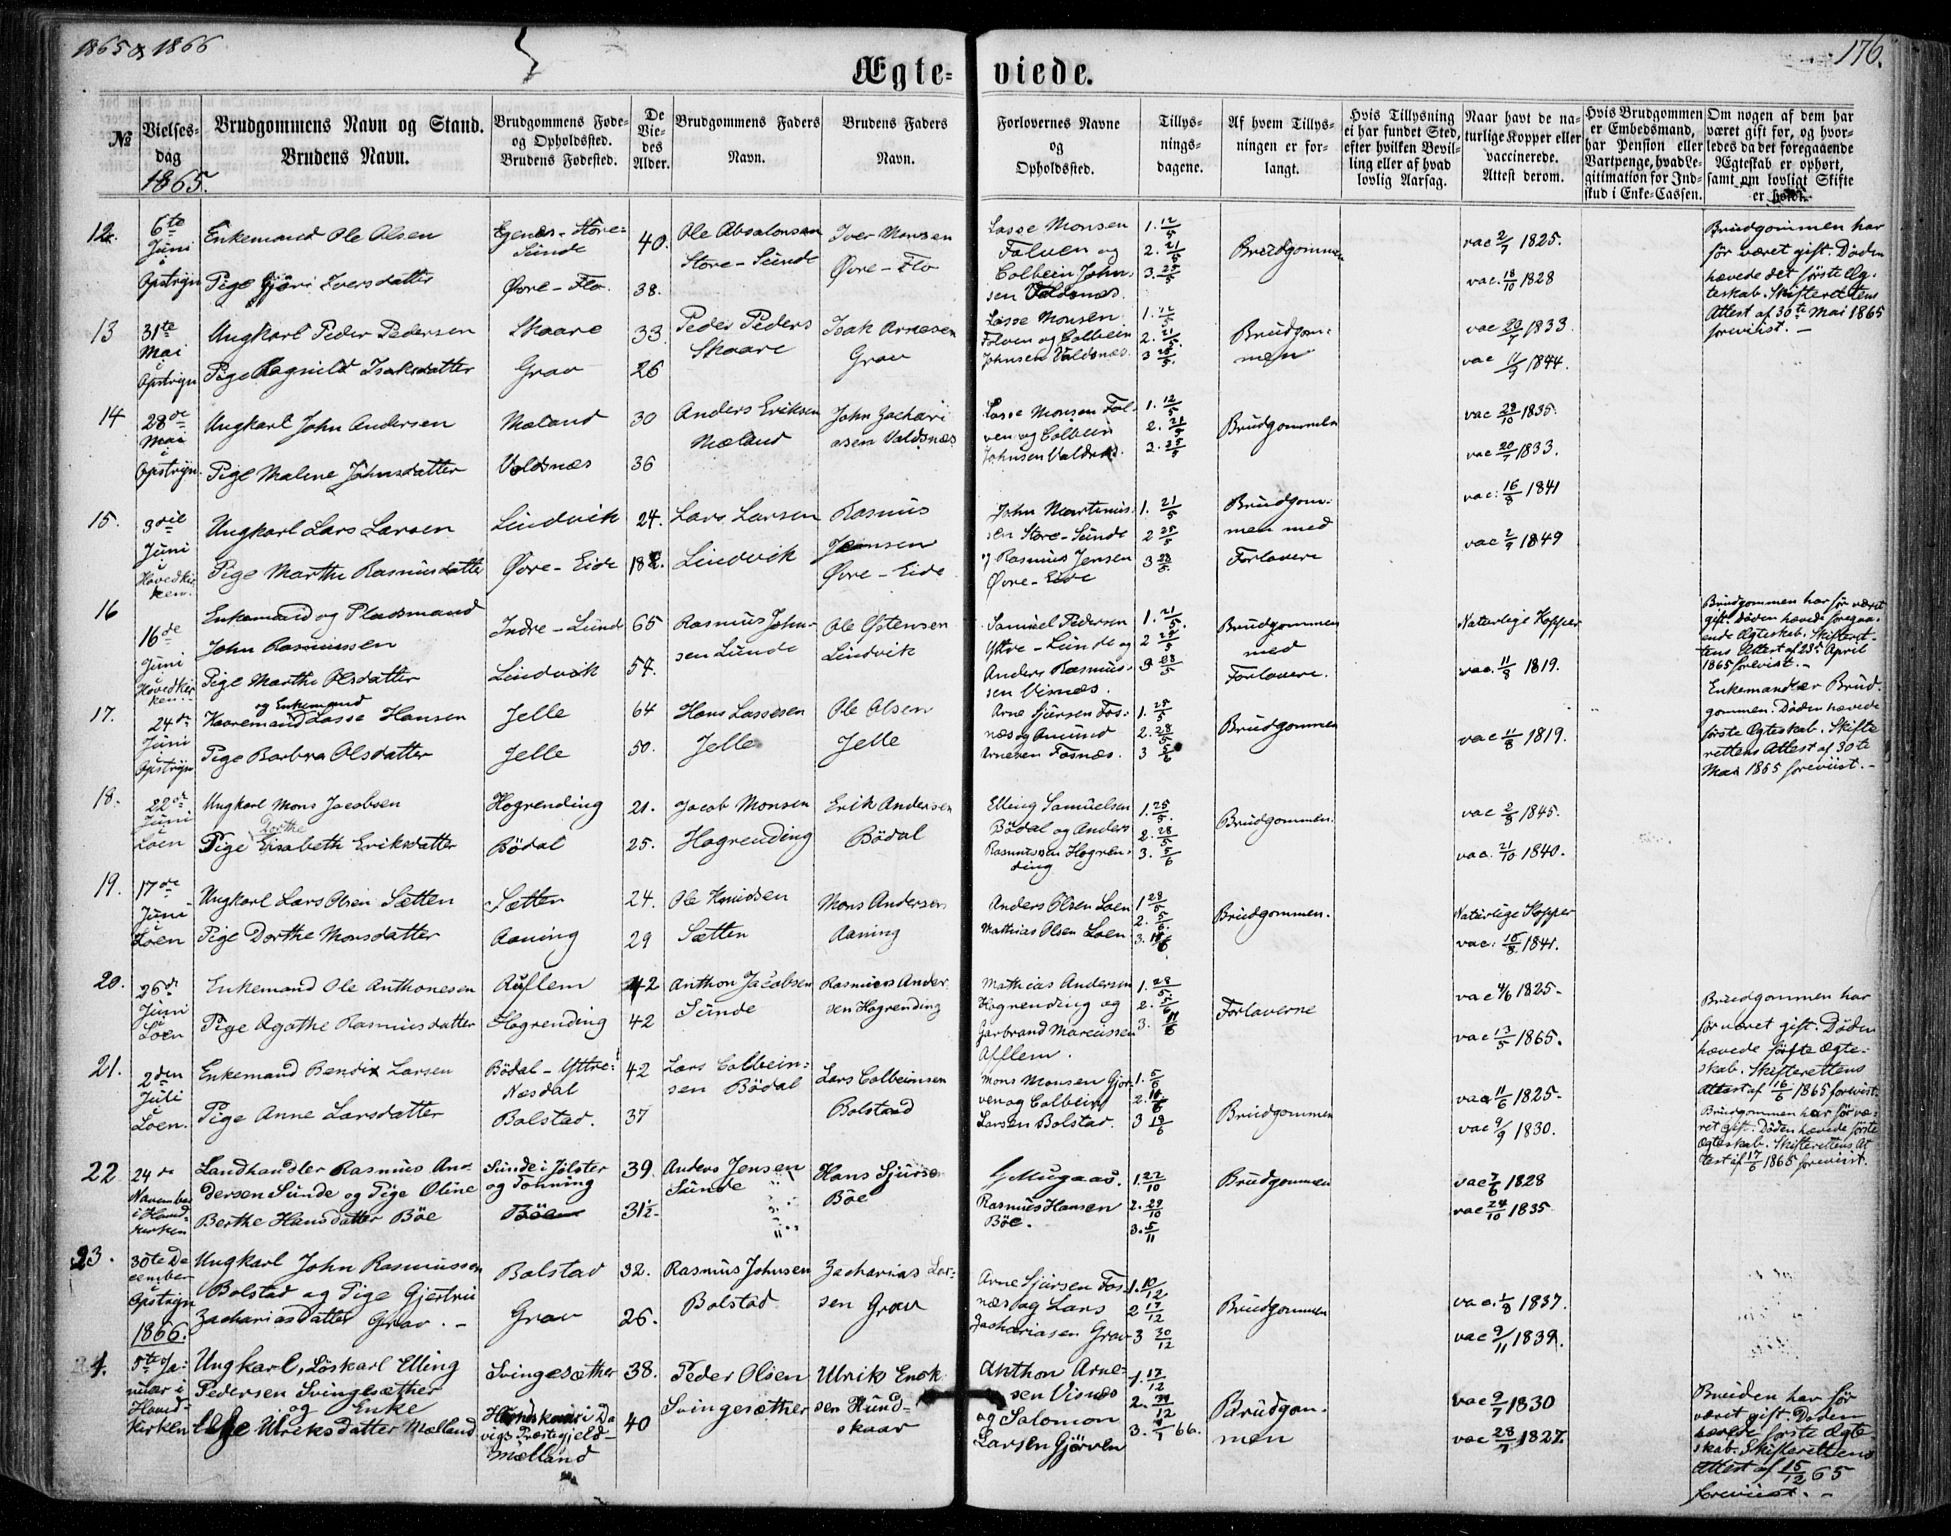 1865 & 1866
176.
Ægte- viede.
№
Vielses-
dag
1865.
Brudgommens Navn og Stand.
Brudens Navn.
Brudgommens Føde-
og Opholdssted.
Brudens Fødested.
De
Vie-
des
Alder.
Brudgommens Faders
Navn.
Brudens Faders
Navn.
Forlovernes Navne
og
Opholdssted.
Tillys-
nings-
dagene.
Af hvem Tillys-
ningen er for-
langt.
Hvis Tillysning
ei har fundet Sted,
efter hvilken Bevil-
ling eller af hvad
lovlig Aarsag.
Naar havt de na-
turlige Kopper eller
vaccinerede.
Attest derom.
Hvis Brudgommen
er Embedsmand,
har Pension eller
Vartpenge, hvad Le-
gitimation for Ind-
skud i Enke-Cassen.
Om nogen af dem har
været gift før, og hvor-
ledes da det foregaaende
Ægteskab er ophørt,
samt om lovligt Skifte
er
12.
6te
Juni
i
Opstryn
Enkemand Ole Olsen
Pige Gjøri Iversdatter
Egenes - Store-
Sunde
Øvre - Flo.
40.
38.
Ole Absalonsen
Store - Sunde
Iver Monsen
Øvre - Flo
Lasse Monsen
Folven og
Colbein John-
sen Valdsnæs.
1. 12/5
2. 21/5
3. 25/5
Brudgommen
vac 2/7 1825.
vac. 18/10 1828
Brudgommen har
før været gift. Døden
hævede det første Æg-
teskab. Skifterettens
Attest af 30te Mai 1865
foreviist. -
13
31te
Mai
i
Opstryn
Ungkarl Peder Pedersen
Pige Ragnild Isaksdatter
Skaare
Grav
33
26
Peder Peders
Skaare
Isak Arnesen
Grav
Lasse Monsen
Folven og Colbein
Johnsen Valdsnæs.
1. 12/5
2. 21/5
3 25/5
Brudgom-
men
vac 20/7 1833.
vac 11/9 1844.
14
28de
Mai
i
Opstryn
Ungkarl John Andersen
Pige Malene Johnsdatter
Mæland
Valdsnæs
30
36
Anders Eriksen
Mæland
John Zachari
asen Valdsnæs
Lasse Monsen Fol-
ven og Colbein
Johnsen Valdsnæs.
1. 12/5
2. 21/5
3. 25/5
Brudgommen
vac 29/10 1835.
vac 20/7 1833.
15.
3die
Juni
i
Hovedkir
ken.
Ungkarl Lars Larsen
Pige Marthe Rasmusdatter
Lindvik
Øvre - Eide
24.
Lars Larsen
Lindvik
Rasmus
Jensen
Øvre - Eide
John Martinus-
sen Store-Sunde
og Rasmus Jensen
Øvre - Eide
1. 21/5
2 25/5
3 28/5.
Brudgom-
men med
Forlovere
vac: 16/8 1841
vac 2/9 1849
16
16de
Juni
i
Hovedkir
ken.
Enkemand og Pladsmand
John Rasmussen
Pige Marthe Olsdatter
Indre - Lunde
Lindvik
65
54.
Rasmus John-
sen Lunde
Ole Østensen
Lindvik
Samuel Pedersen
Ytre - Lunde og
Anders Rasmus-
sen Visnæs.
1. 21/5.
2 25/5
3 28/5
Brudgommen
med
Forlovere.
Naturlige Kopper
vac. 11/8 1819.
Brudgommen har før været
gift. Døden hævede foregaa-
ende Ægteskab. Skifteret-
tens Attest af 23de April
1865 foreviist. -
17.
24de
Juni
i
Opstryn
og Enkemand
Kaaremand Lasse Hansen
Pige Barbra Olsdatter
Jelle
Jelle
64
50.
Hans Lassesen
Jelle
Ole Olsen
Jelle
Arne Sjursen Fos-
næs og Amund
Arnesen Fosnæs.
1. 25/5
2. 28/5
3 5/6
Brudgommen
vac 11/8 1819.
Enkemand er Brud-
gommen. Døden hævede
første Ægteskab. Skifte
rettens Attest af 30te
Mai 1865 foreviist. -
18.
22de
Juni
i
Loen
Ungkarl Mons Jacobsen
Dorthe
Pige Elisabeth Eriksdatter
Hogrending
Bödal
21.
25.
Jacob Monsen
Hogrending
Erik Andersen
Bödal
Elling Samuelsen
Bødal og Anders
Rasmussen Hogren-
ding
1. 25/5.
2. 28/5
3. 5/6
Brudgommen.
vac 2/8 1845.
vac. 21/10 1840.
19.
17de
Juni
i
Loen
Ungkarl Lars Olsen Sætten
Pige Dorthe Monsdatter
Sætten
Aaning
24.
29
Ole Knudsen
Sætten
Mons Andersen
Aaning
Anders Olsen Loen
Mathias Olsen Loen
1 28/5
2. 5/6.
3. 11/6
Brudgommen.
Naturlige Kopper
vac. 15/8 1841.
20.
26de
Juni
i
Loen
Enkemand Ole Anthonesen
Pige Agathe Rasmusdatter
Auflem
Hogrending
42
42
Anthon Jacobsen
Sunde
Rasmus Ander-
sen Hogrending
Mathias Andersen
Hogrending og
Garbrand Marcussen
Afflem.
1. 28/5.
2. 5/6
3. 11/6
Forloverne
vac 4/6 1825-
vac 13/5 1865.
Brudgommen har
før været gift. Døden
hævede første Ægte-
skab. Skifterettens
Attest af 16/6 1865 foreviist.
21.
2den
Juli
i
Loen.
Enkemand Bendix Larsen
Pige Anne Larsdatter
Bödal - Yttre-
Næsdal
Bolstad.
42
37
Lars Colbein-
sen Bödal
Lars Colbeinsen
Bolstad
Mons Monsen Gjør-
ven og Colbein
Larsen Bolstad.
1. 5/6
2. 11/6
3 19/6
Brudgommen
vac 11/6 1825-
vac 9/9 1830.
Brudgommen har før væ-
ret gift. Døden hævede første
Ægteskab. Skifterettens At
test af 17/6 1865 foreviist.
22
24de
November
i Hoved-
kirken
Landhandler Rasmus An-
dersen Sunde og Pige Oline
Berthe Hansdatter Böe
Sunde i Jølster
og Tonning
Böe
39.
31½.
Anders Jensen
Sunde
Hans Sjursen
Böe
Mugaas.
Rasmus Hansen
Böe.
1. 22/10
2. 29/10
3. 5/11
Brudgommen
vac 7/6 1828
vac 24/10 1835
23.
30te De
cember
i
Opstryn
Ungkarl John Rasmussen
Bolstad og Pige Gjertrui
Zachariasdatter Grav. -
Bolstad
Grav
32.
26.
Rasmus Johnsen
Bolstad
Zacharias Lar-
sen Grav
Arne Sjursen Fos-
næs og Lars
Zachariasen Grav
1. 10/12
2 17/12
3 30/12
Brudgommen
vac. 1/8 1837.
vac 9/11 1839.
1866.
24.
5te Ja-
nuar i
Hoved-
kirken
Ungkarl, Løskarl Elling
Pedersen Svingesæther
og Enke
Ulriksdatter Mælland
Svingesæther
Hundskaar i Da
vigs Præstegjeld -
Mælland
38.
40
Peder Olsen
Svingesæther
Ulrik Enok
sen Hund-
skaar
Anthon Arne-
sen Visnes
og Salomon
Larsen Gjørven
1. 17/12
2. 31/12
3. 1/1 66.
Brudgom-
men
vac 9/7 1830
vac 28/7 1827.
Bruden har før
været gift. Døden
hævede første Ægte-
skab. Skifterettens
Attest af 15/12 65
foreviist. -